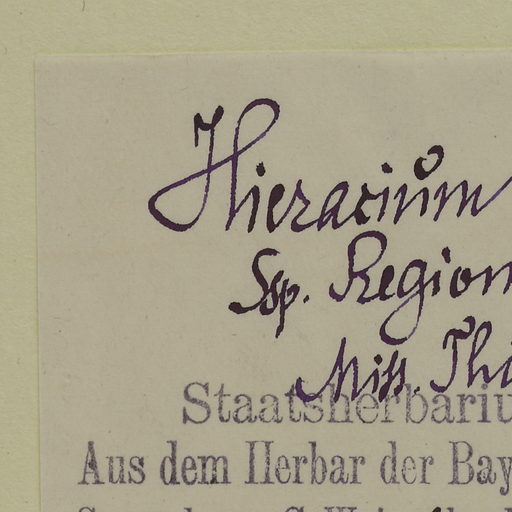 Hieracium
Ssp. Region
Miss. Th
Staatsherbariu
Aus dem Herbar der Bay